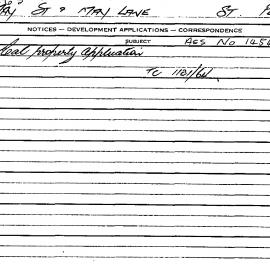 St & May Lane St. P
NOTICES — DEVELOPMENT APPLICATIONS — CORRESPONDENCE
SUBJECT Aes No 1456
Property Application
TC 1181/64